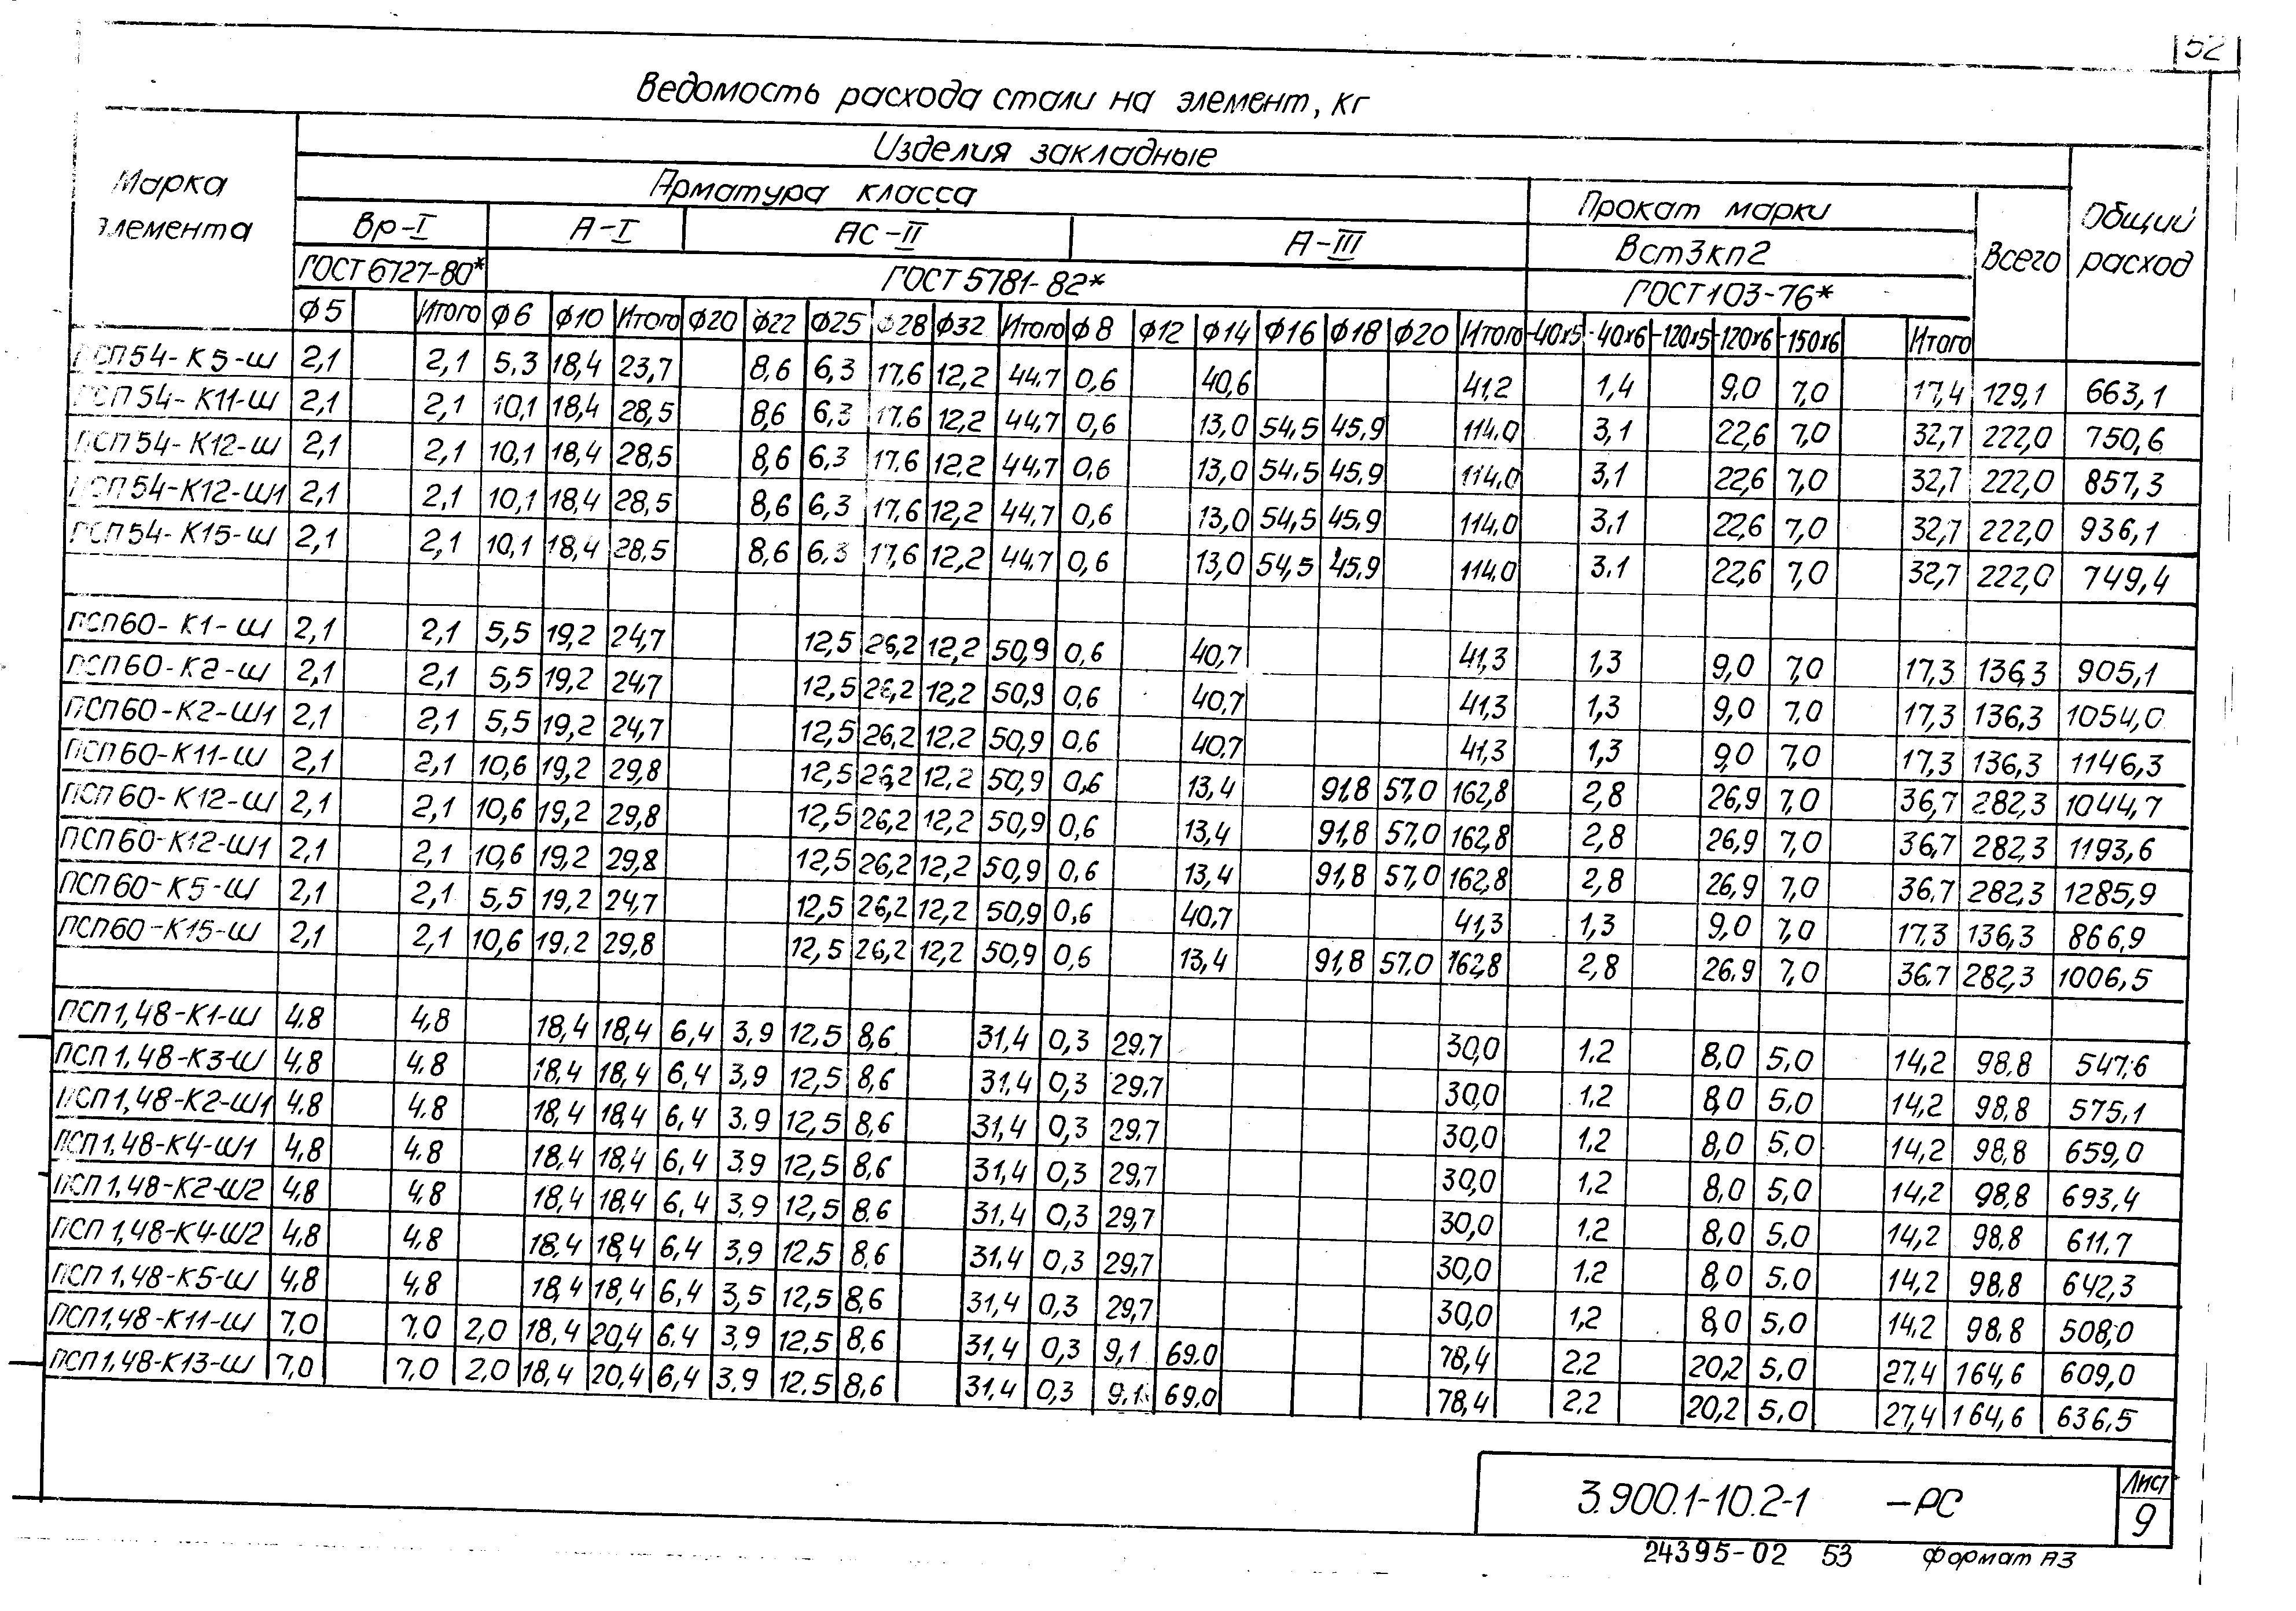 52
Ведомость расхода стали на элемент, кг
Марка элемента
Изделия закладные
Общий расход
Арматура класса
Прокат марки
Всего
Вр-I А-I АС-II А-III
Вст3кп2
ГОСТ 6727-80* ГОСТ 5781-82* ГОСТ 103-76*
Ф5 Итого Ф6 Ф10 Итого Ф20 Ф22 Ф25 Ф28 Ф32 Итого Ф8 Ф12 Ф14 Ф16 Ф18 Ф20 Итого -40х5 -40х6 -120х5 -120х6 -150х6 Итого
ПСП54-К5-Ш 2,1 2,1 5,3 18,4 23,7 8,6 6,3 17,6 12,2 44,7 0,6 40,6 41,2 1,4 9,0 7,0 17,4 129,1 663,1
ПСП54-К11-Ш 2,1 2,1 10,1 18,4 28,5 8,6 6,3 17,6 12,2 44,7 0,6 13,0 54,5 45,9 114,0 3,1 22,6 7,0 32,7 222,0 750,6
ПСП54-К12-Ш 2,1 2,1 10,1 18,4 28,5 8,6 6,3 17,6 12,2 44,7 0,6 13,0 54,5 45,9 114,0 3,1 22,6 7,0 32,7 222,0 857,3
ПСП54-К12-Ш1 2,1 2,1 10,1 18,4 28,5 8,6 6,3 17,6 12,2 44,7 0,6 13,0 54,5 45,9 114,0 3,1 22,6 7,0 32,7 222,0 936,1
ПСП54-К15-Ш 2,1 2,1 10,1 18,4 28,5 8,6 6,3 17,6 12,2 44,7 0,6 13,0 54,5 45,9 114,0 3,1 22,6 7,0 32,7 222,0 749,4
ПСП60-К1-Ш 2,1 2,1 5,5 19,2 24,7 12,5 26,2 12,2 50,9 0,6 40,7 41,3 1,3 9,0 7,0 17,3 136,3 905,1
ПСП60-К2-Ш 2,1 2,1 5,5 19,2 24,7 12,5 26,2 12,2 50,9 0,6 40,7 41,3 1,3 9,0 7,0 17,3 136,3 1054,0
ПСП60-К2-Ш1 2,1 2,1 5,5 19,2 24,7 12,5 26,2 12,2 50,9 0,6 40,7 41,3 1,3 9,0 7,0 17,3 136,3 1146,3
ПСП60-К11-Ш 2,1 2,1 10,6 19,2 29,8 12,5 26,2 12,2 50,9 0,6 13,4 91,8 57,0 162,8 2,8 26,9 7,0 36,7 282,3 1044,7
ПСП60-К12-Ш 2,1 2,1 10,6 19,2 29,8 12,5 26,2 12,2 50,9 0,6 13,4 91,8 57,0 162,8 2,8 26,9 7,0 36,7 282,3 1193,6
ПСП60-К12-Ш1 2,1 2,1 10,6 19,2 29,8 12,5 26,2 12,2 50,9 0,6 13,4 91,8 57,0 162,8 2,8 26,9 7,0 36,7 282,3 1285,9
ПСП60-К5-Ш 2,1 2,1 5,5 19,2 24,7 12,5 26,2 12,2 50,9 0,6 40,7 41,3 1,3 9,0 7,0 17,3 136,3 866,9
ПСП60-К15-Ш 2,1 2,1 10,6 19,2 29,8 12,5 26,2 12,2 50,9 0,6 13,4 91,8 57,0 162,8 2,8 26,9 7,0 36,7 282,3 1006,5
ПСП1,48-К1-Ш 4,8 4,8 18,4 18,4 6,4 3,9 12,5 8,6 31,4 0,3 29,7 30,0 1,2 8,0 5,0 14,2 98,8 547,6
ПСП1,48-К3-Ш 4,8 4,8 18,4 18,4 6,4 3,9 12,5 8,6 31,4 0,3 29,7 30,0 1,2 8,0 5,0 14,2 98,8 575,1
ПСП1,48-К2-Ш1 4,8 4,8 18,4 18,4 6,4 3,9 12,5 8,6 31,4 0,3 29,7 30,0 1,2 8,0 5,0 14,2 98,8 659,0
ПСП1,48-К4-Ш1 4,8 4,8 18,4 18,4 6,4 3,9 12,5 8,6 31,4 0,3 29,7 30,0 1,2 8,0 5,0 14,2 98,8 693,4
ПСП1,48-К2-Ш2 4,8 4,8 18,4 18,4 6,4 3,9 12,5 8,6 31,4 0,3 29,7 30,0 1,2 8,0 5,0 14,2 98,8 611,7
ПСП1,48-К4-Ш2 4,8 4,8 18,4 18,4 6,4 3,9 12,5 8,6 31,4 0,3 29,7 30,0 1,2 8,0 5,0 14,2 98,8 642,3
ПСП1,48-К5-Ш 4,8 4,8 18,4 18,4 6,4 3,5 12,5 8,6 31,4 0,3 29,7 30,0 1,2 8,0 5,0 14,2 98,8 508,0
ПСП1,48-К11-Ш 7,0 7,0 2,0 18,4 20,4 6,4 3,9 12,5 8,6 31,4 0,3 9,1 69,0 78,4 2,2 20,2 5,0 27,4 164,6 609,0
ПСП1,48-К13-Ш 7,0 7,0 2,0 18,4 20,4 6,4 3,9 12,5 8,6 31,4 0,3 9,1 69,0 78,4 2,2 20,2 5,0 27,4 164,6 636,5
3.900.1-10.2-1 -РС
Лист
9
24395-02 53 формат А3